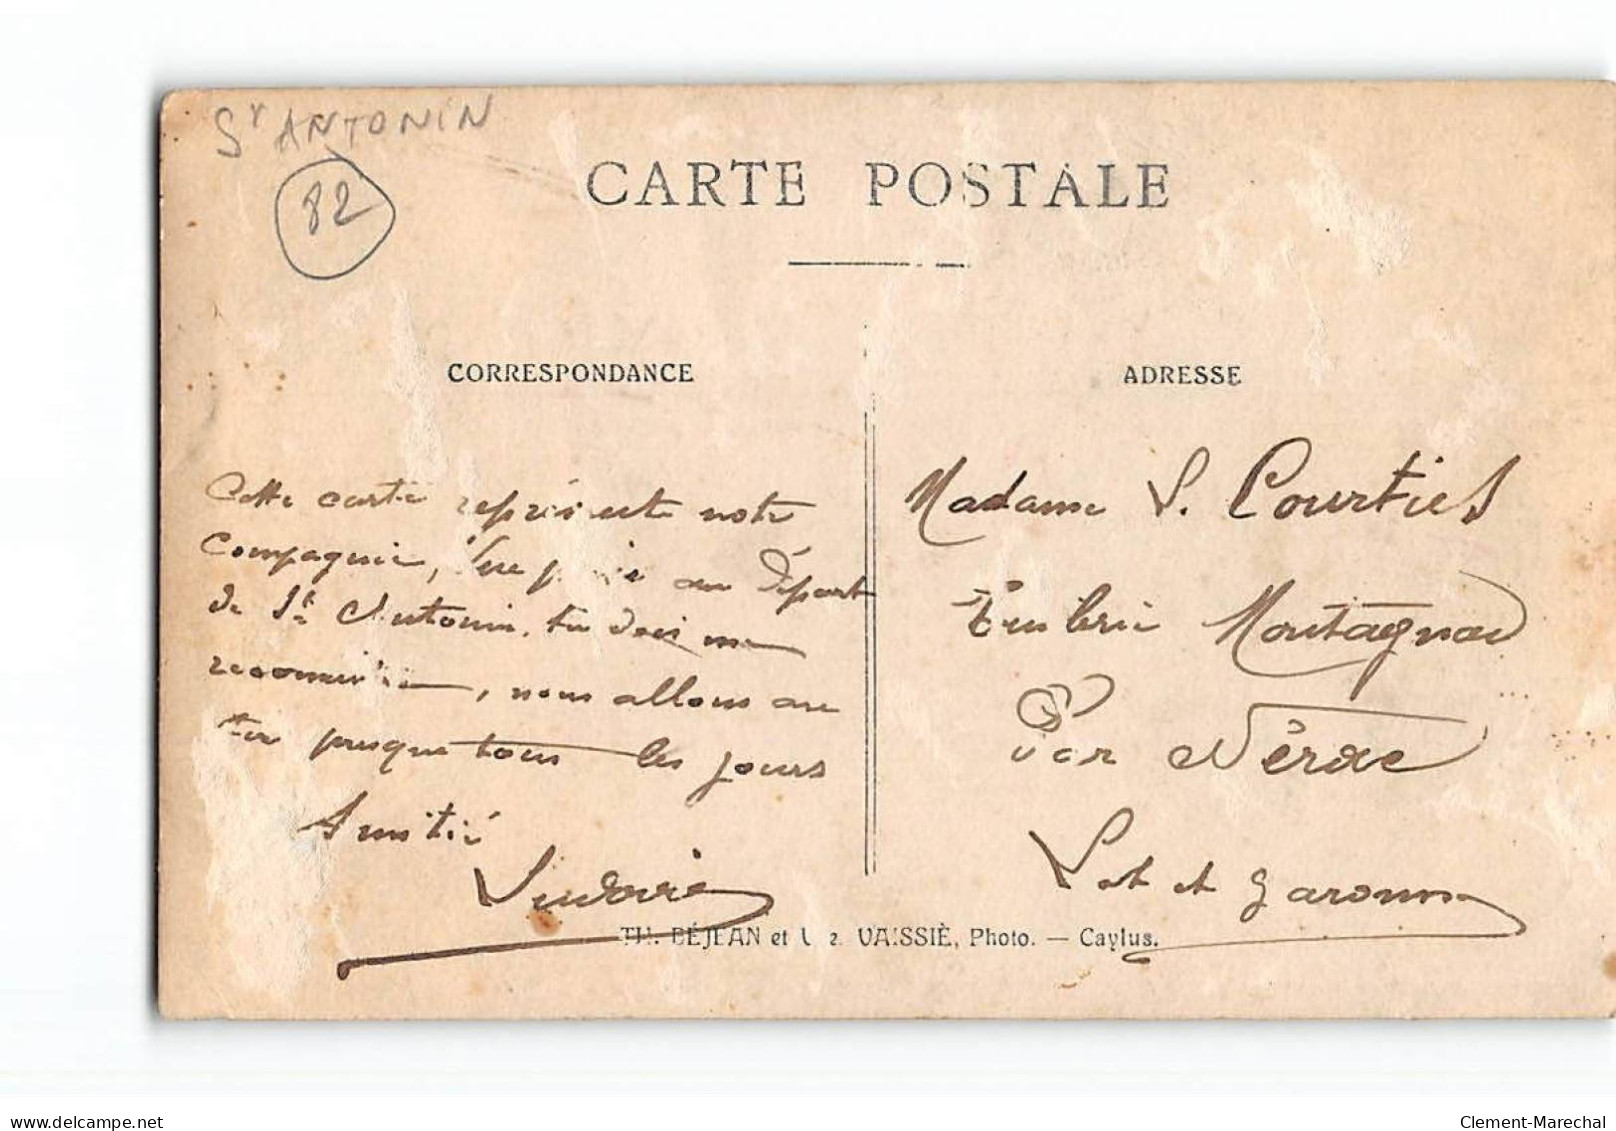 St ANTONIN
82
CARTE POSTALE
CORRESPONDANCE
ADRESSE
Cette carte représente notre
compagnie, au Départ
de St Antonin, tu dois me
nous allons au
presque tous les jours
Amitié
Madame Courties
Montagnac
Par Nérac
Lot et Garonne
TH. BÉJEAN et VAISSIÈ, Photo. — Caylus.
www.delcampe.net
Clement-Marechal